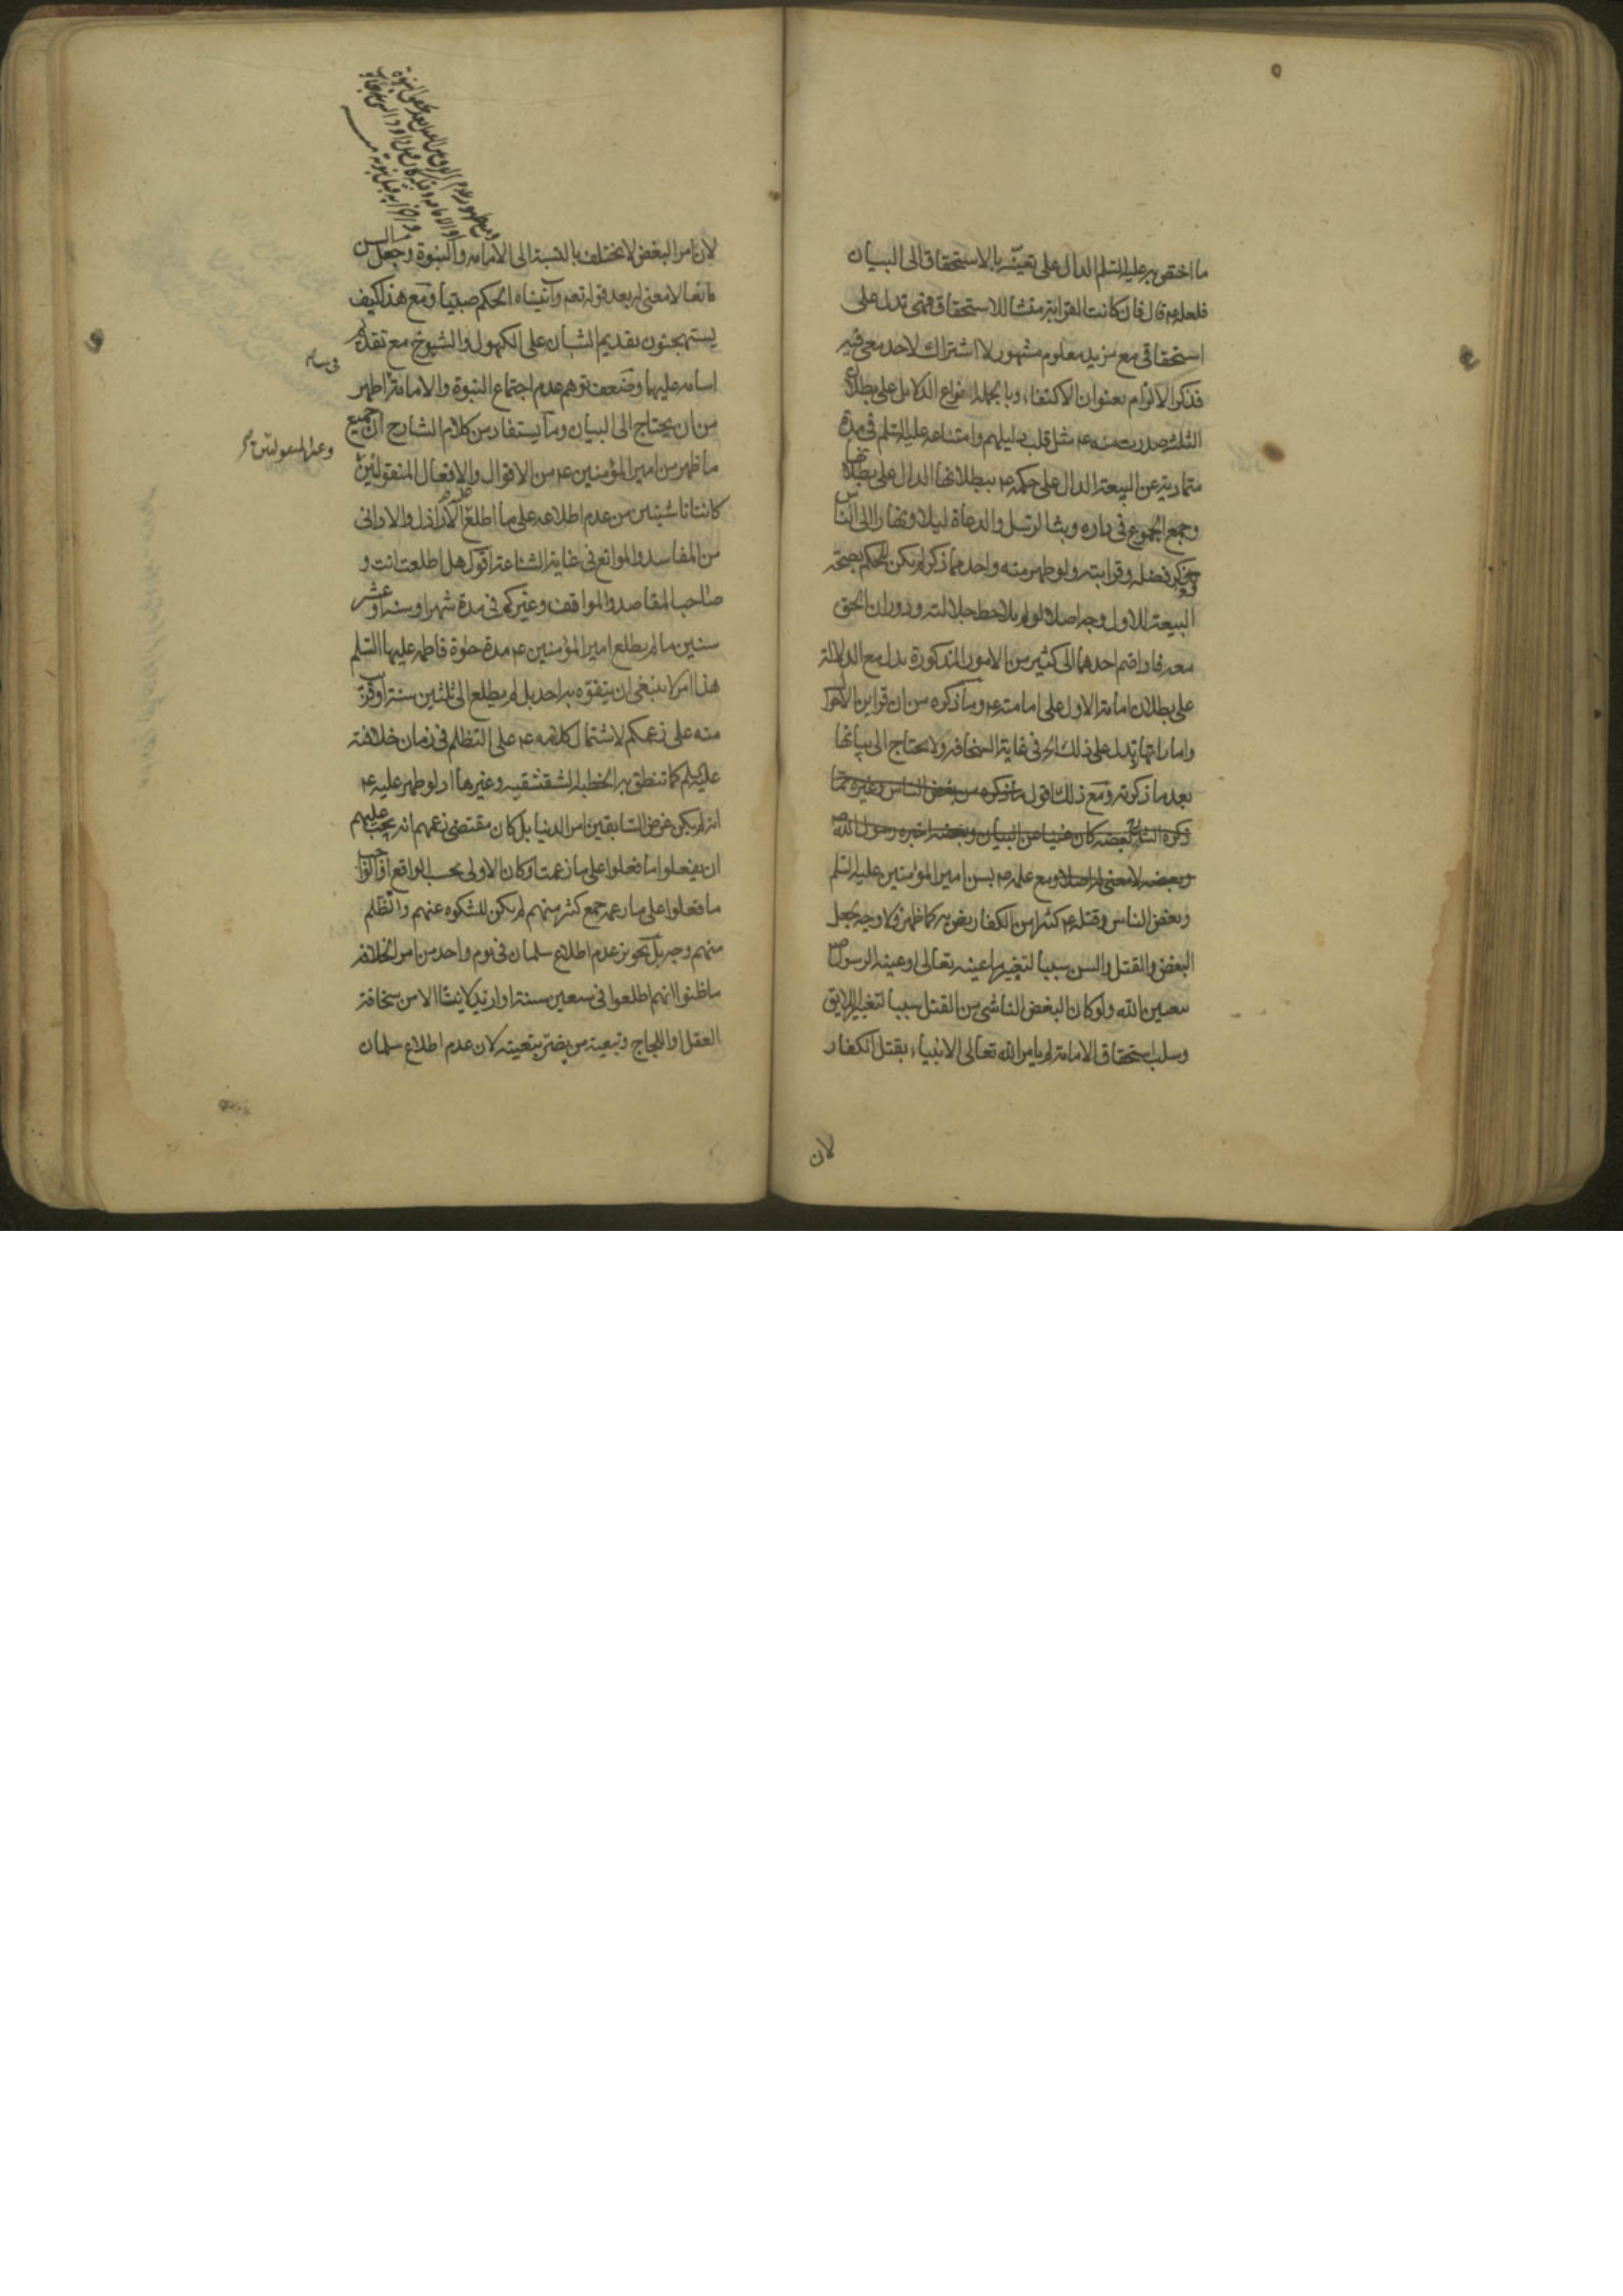 ما اختص به عليه السلم الدال على تعينه بالاستحقاق الى البيان
فلعله ع قال فان كانت القرابة منشا للاستحقاق فهي تدل على
استحقاقي مع مزيد معلوم مشهور لا اشتراك لاحد معي فيه
فذكر الالزام بعنوان الاكتفاء وبالجملة انواع الدلائل على بطلان
التى صدرت منه ع مثل قلب دليلهم وامتناعه عليه السلم في مدة
متمادية عن البيعة الدال على حكمه ع ببطلانها الدال على بطلانها
وجمع الجموع في داره وبث الرسل والدعاة ليلا ونهارا الى الناس
وذكر فضله وقرابته ولو ظهر منه واحد مما ذكر لم يكن للحكم بصحة
البيعة للاول وجه اصلا لو لم يلاحظ جلالته ودوران الحق
معه فاذا ضم احدهما الى كثير من الامور المذكورة بدا مع الدلالة
على بطلان امامة الاول على امامته ع وما ذكره من ان قراين الاحوال
واماراتها تدل على ذلك في غاية السخافة ولا يحتاج الى بيانها
بعد ما ذكرته ومع ذلك اقول ما ذكره من بغض الناس وغيره مما
ذكره الشارح بعضه كان غنيا عن البيان وبعضه اخبره رسول الله ص
وبعضه لا معنى له اصلا ومع علمه ص بسن امير المؤمنين عليه السلم
وبغض الناس وقتله ع كثيرا من الكفار بغيرهم كما ظهر فلا وجه لجعل
البغض والقتل والسن سببا لتغيير ما عينه تعالى او عينه الرسول ص
بتعيين الله ولو كان البغض الناشي من القتل سببا لتغيير اللايق
وسلب استحقاق الامامة لم يامر الله تعالى الانبياء بقتل الكفار
لان
لان امر البغض لا يختلف بالنسبة الى الامامة والنبوة وجعل السن
مانعا لا معنى له بعد قوله تعالى وآتيناه الحكم صبيا ومع هذا كيف
يستهجنون تقديم الشبان على الكهول والشيوخ مع تقدم
اسامه عليهما وضعف توهم عدم اجتماع النبوة والامامة اظهر
من ان يحتاج الى البيان وما يستفاد من كلام الشارح ان جميع
ما ظهر من امير المؤمنين ع من الاقوال والافعال المنقولتين
كانتا ناشيتين من عدم اطلاعه على ما اطلع عليه الاراذل والاداني
من المفاسد والموانع في غاية الشناعة اقول هل اطلعت انت و
صاحب المقاصد والمواقف وغيركم في مدة شهر او سنة او عشر
سنين ما لم يطلع امير المؤمنين ع مدة حيوة فاطمه عليها السلم
هذا امر لا ينبغي ان يتفوه به احد بل لم يطلع الى ثلثين سنة او قرب
منه على زعمكم لاشتمال كلامه ع على التظلم في زمان خلافته
عليه السلم كما تنطق به الخطبة الشقشقية وغيرها اذ لو ظهر عليه ع
انه لم يكن غرض السابقين امر الدنيا بل كان مقتضى زعمهم انه يجب عليهم
ان يفعلوا ما فعلوا على ما زعمت او كان الاولى بحسب الواقع
ما فعلوا على ما زعمه جمع كثير منهم لم يكن للشكوه عنهم والتظلم
منهم وجه بل تجويز عدم اطلاع سلمان في يوم واحد من امر الخلافة
ما ظنوا انهم اطلعوا في سبعين سنة او ازيد لا ينشا الا من سخافة
العقل او اللجاج وتبعية من يضر بتبعيته لان عدم اطلاع سلمان